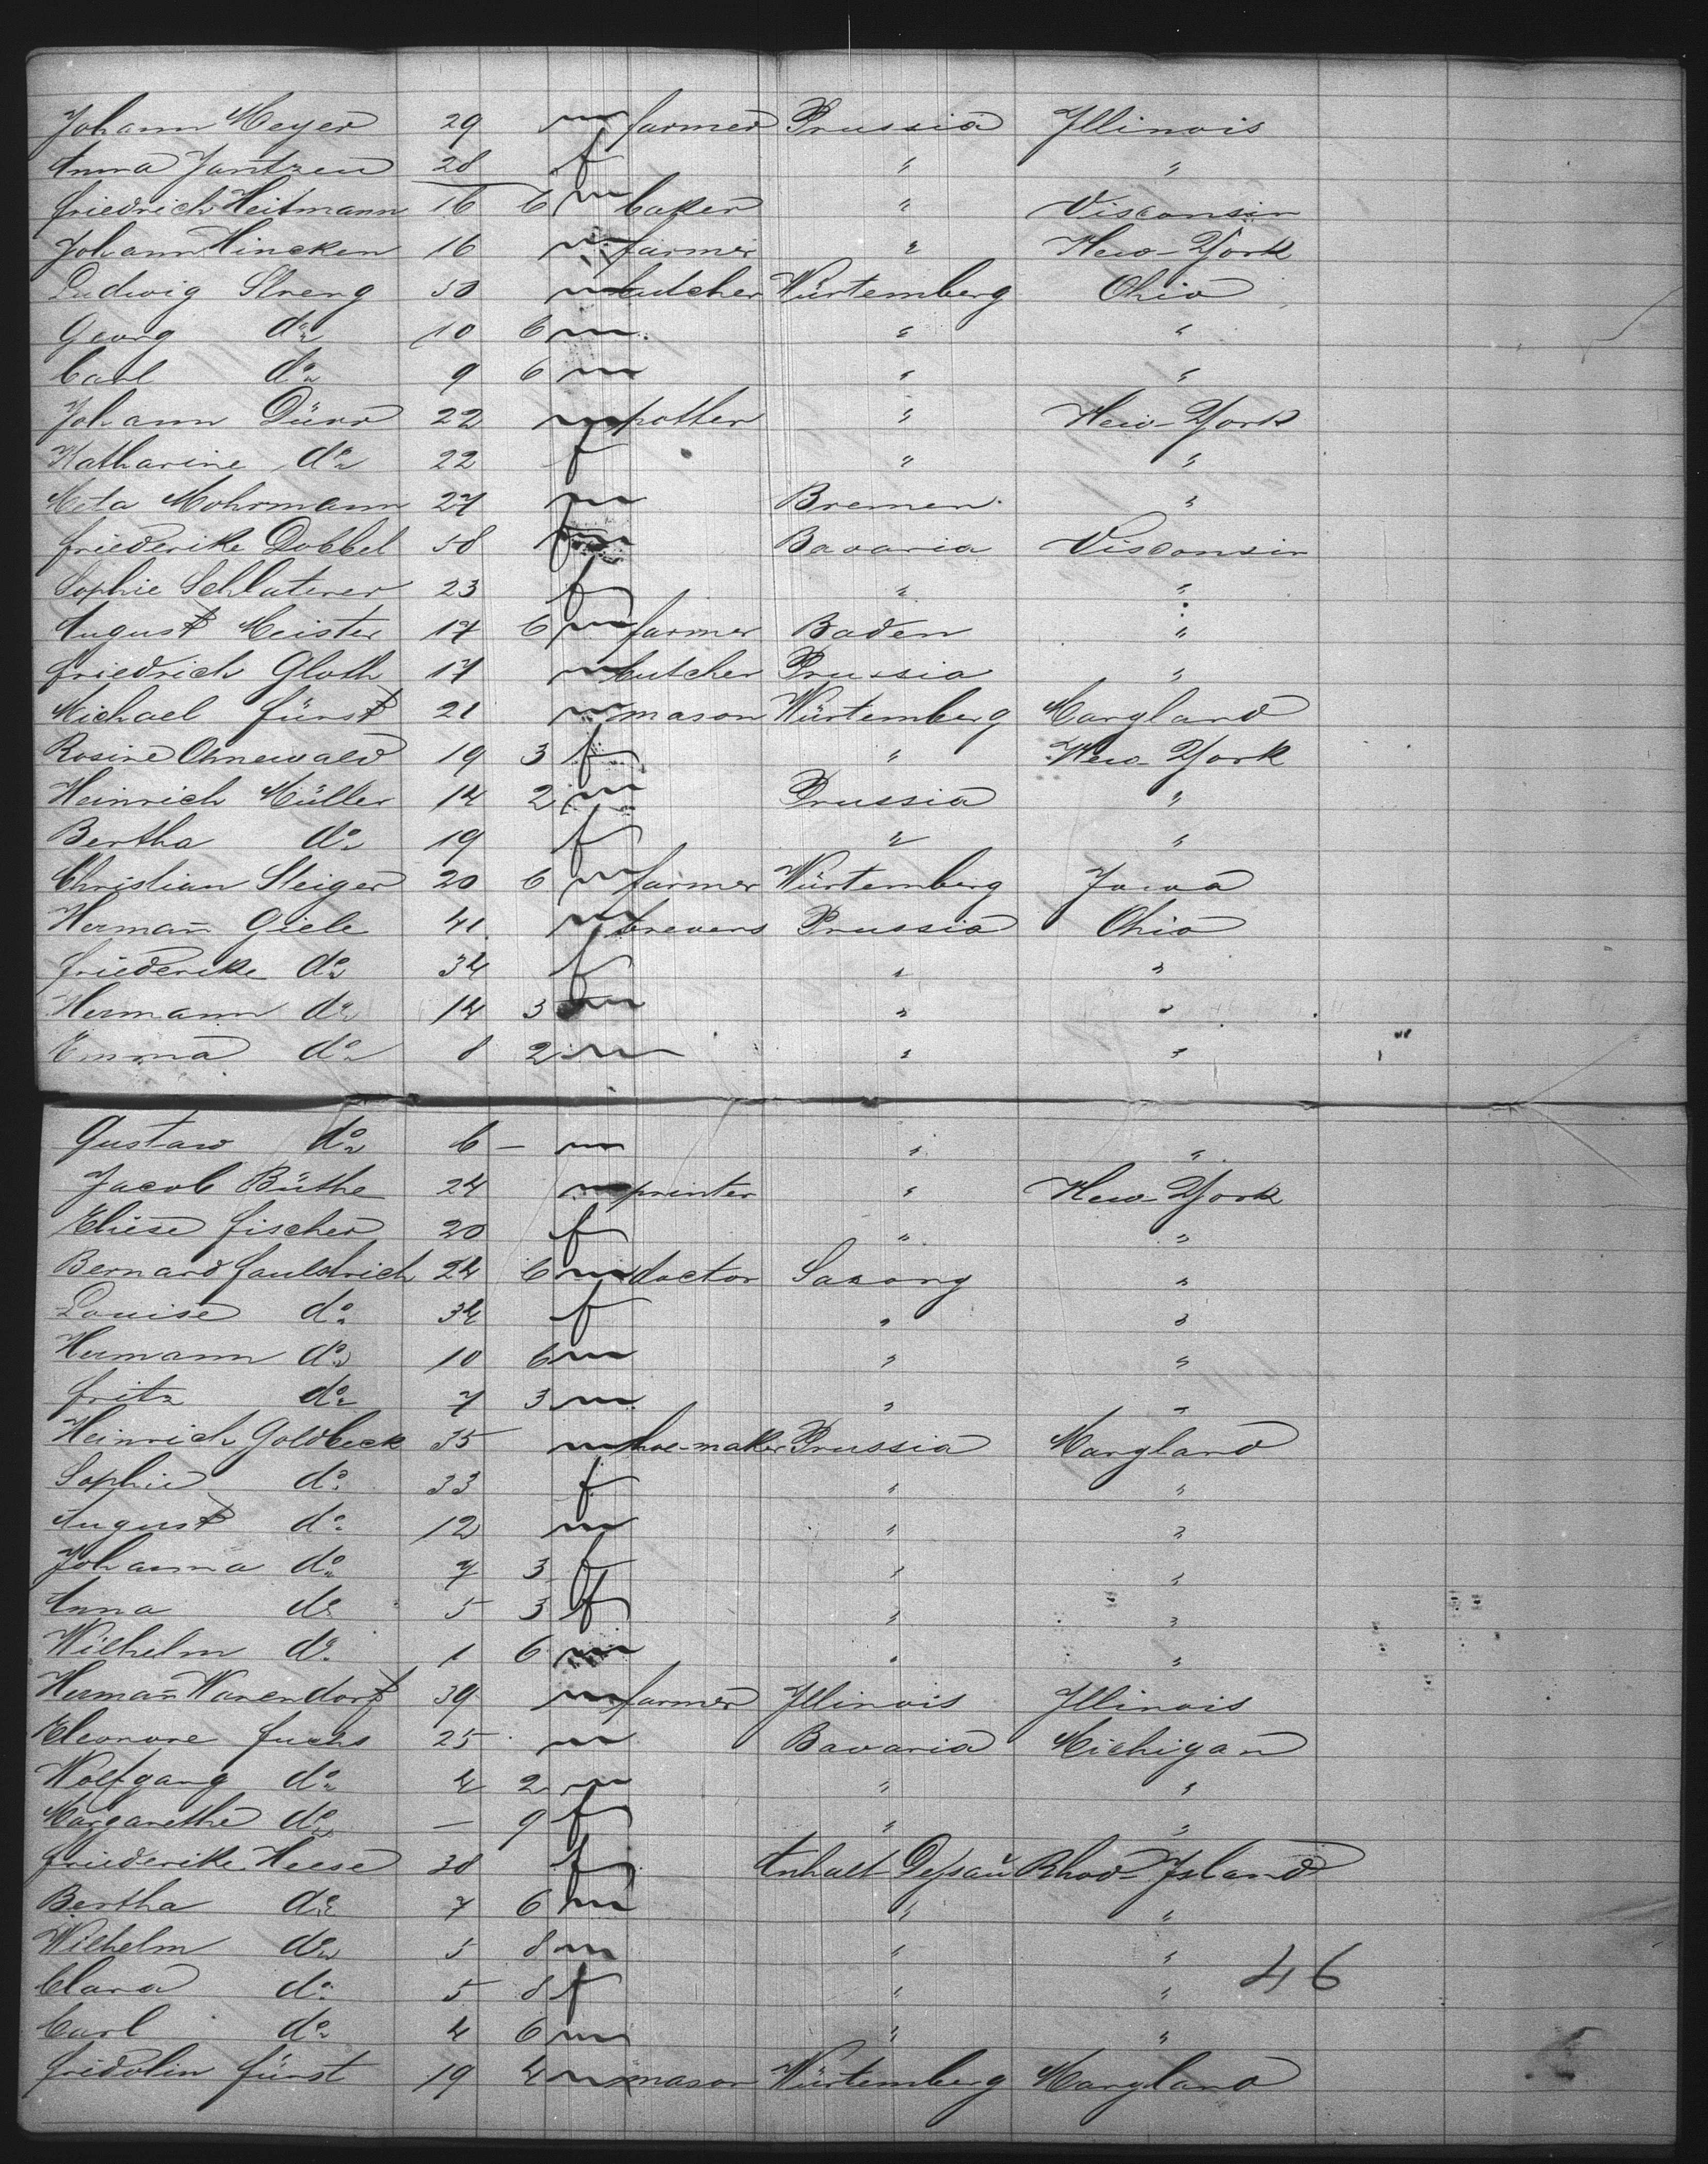 Johann Meyer 29 m farmer Prussia Illinois
Anna Jantzen 28 f " "
Friedrich Heitmann 16 6 m baker " Visconsin
Johann Hincken 16 m farmer " New-York
Ludwig Streng 50 m butcher Würtemberg Ohio
Georg do 10 6 m " "
Carl do 9 6 m " "
Johann Dürr 22 m potter " New-York
Katharine do 22 f " "
Meta Mohrmann 27 m Bremen "
Friederike Dobbel 58 f Bavaria Visconsin
Sophie Schlaterer 23 f " "
August Meister 17 6 m farmer Baden "
Friedrich Gloth 17 m butcher Prussia "
Michael Fürst 21 m mason Würtemberg Maryland
Rosine Ohnewald 19 3 f " New-York
Heinrich Müller 14 2 m Prussia "
Bertha do 19 f " "
Christian Steiger 20 6 m farmer Würtemberg Jowa
Herman̄ Giele 41 m brewers Prussia Ohio
Friederike do 34 f " "
Hermann do 14 3 m " "
Emma do 8 2 m " "
Gustav do 6 — m " "
Jacob Büthe 24 m printer " New-York
Eliese Fischer 20 f " "
Bernard Faulstrich 24 6 m doctor Saxony "
Louise do 34 f " "
Hermann do 10 6 m " "
Fritz do 7 3 m " "
Heinrich Goldbeck 35 m shoe-maker Prussia Maryland
Sophie do 33 f " "
August do 12 m " "
Johanna do 7 3 f " "
Anna do 5 3 f " "
Wilhelm do 1 6 m " "
Herman̄ Warendorf 39 m farmer Illinois Illinois
Eleonore Fuchs 25 m Bavaria Michigan
Wolfgang do 4 2 m " "
Margarethe do — 9 f " "
Friederike Heese 38 f Anhalt-Deßau Rhod-Island
Bertha do 7 6 m " "
Wilhelm do 5 8 m " "
Clara do 5 8 f " " 46
Carl do 4 6 m " "
Fridolin Fürst 19 4 m mason Würtemberg Maryland